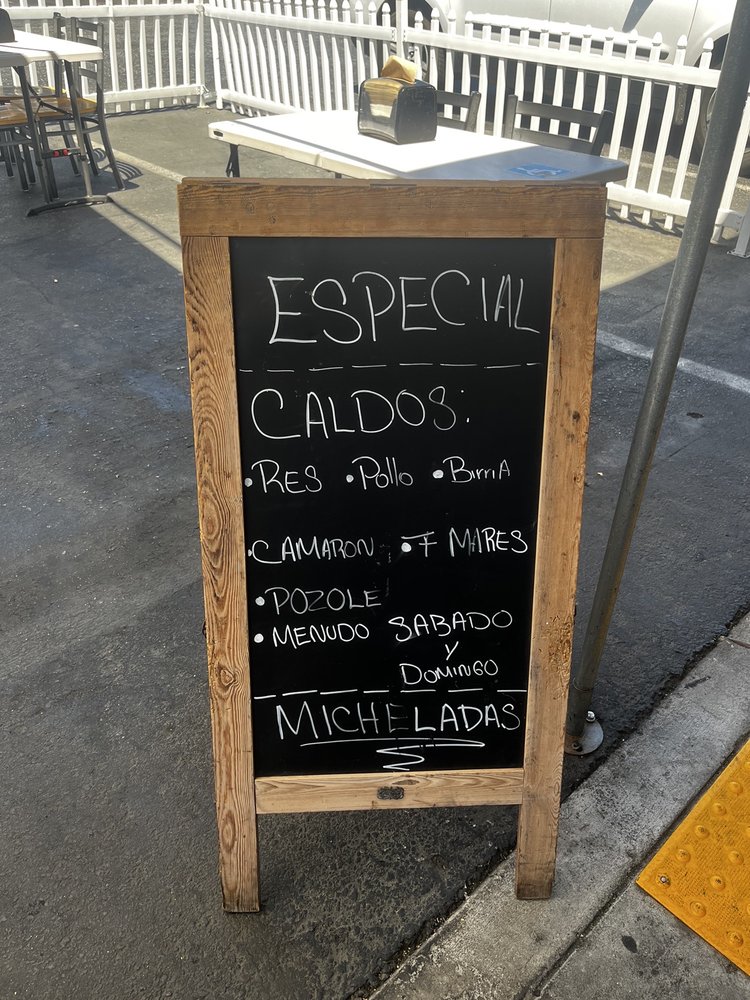 ESPECIAL
CALDOS:
• RES • Pollo • BirriA
• CAMARON • 7 MARES
• POZOLE
• MENUDO SABADO
Y
DOMINGO
MICHELADAS